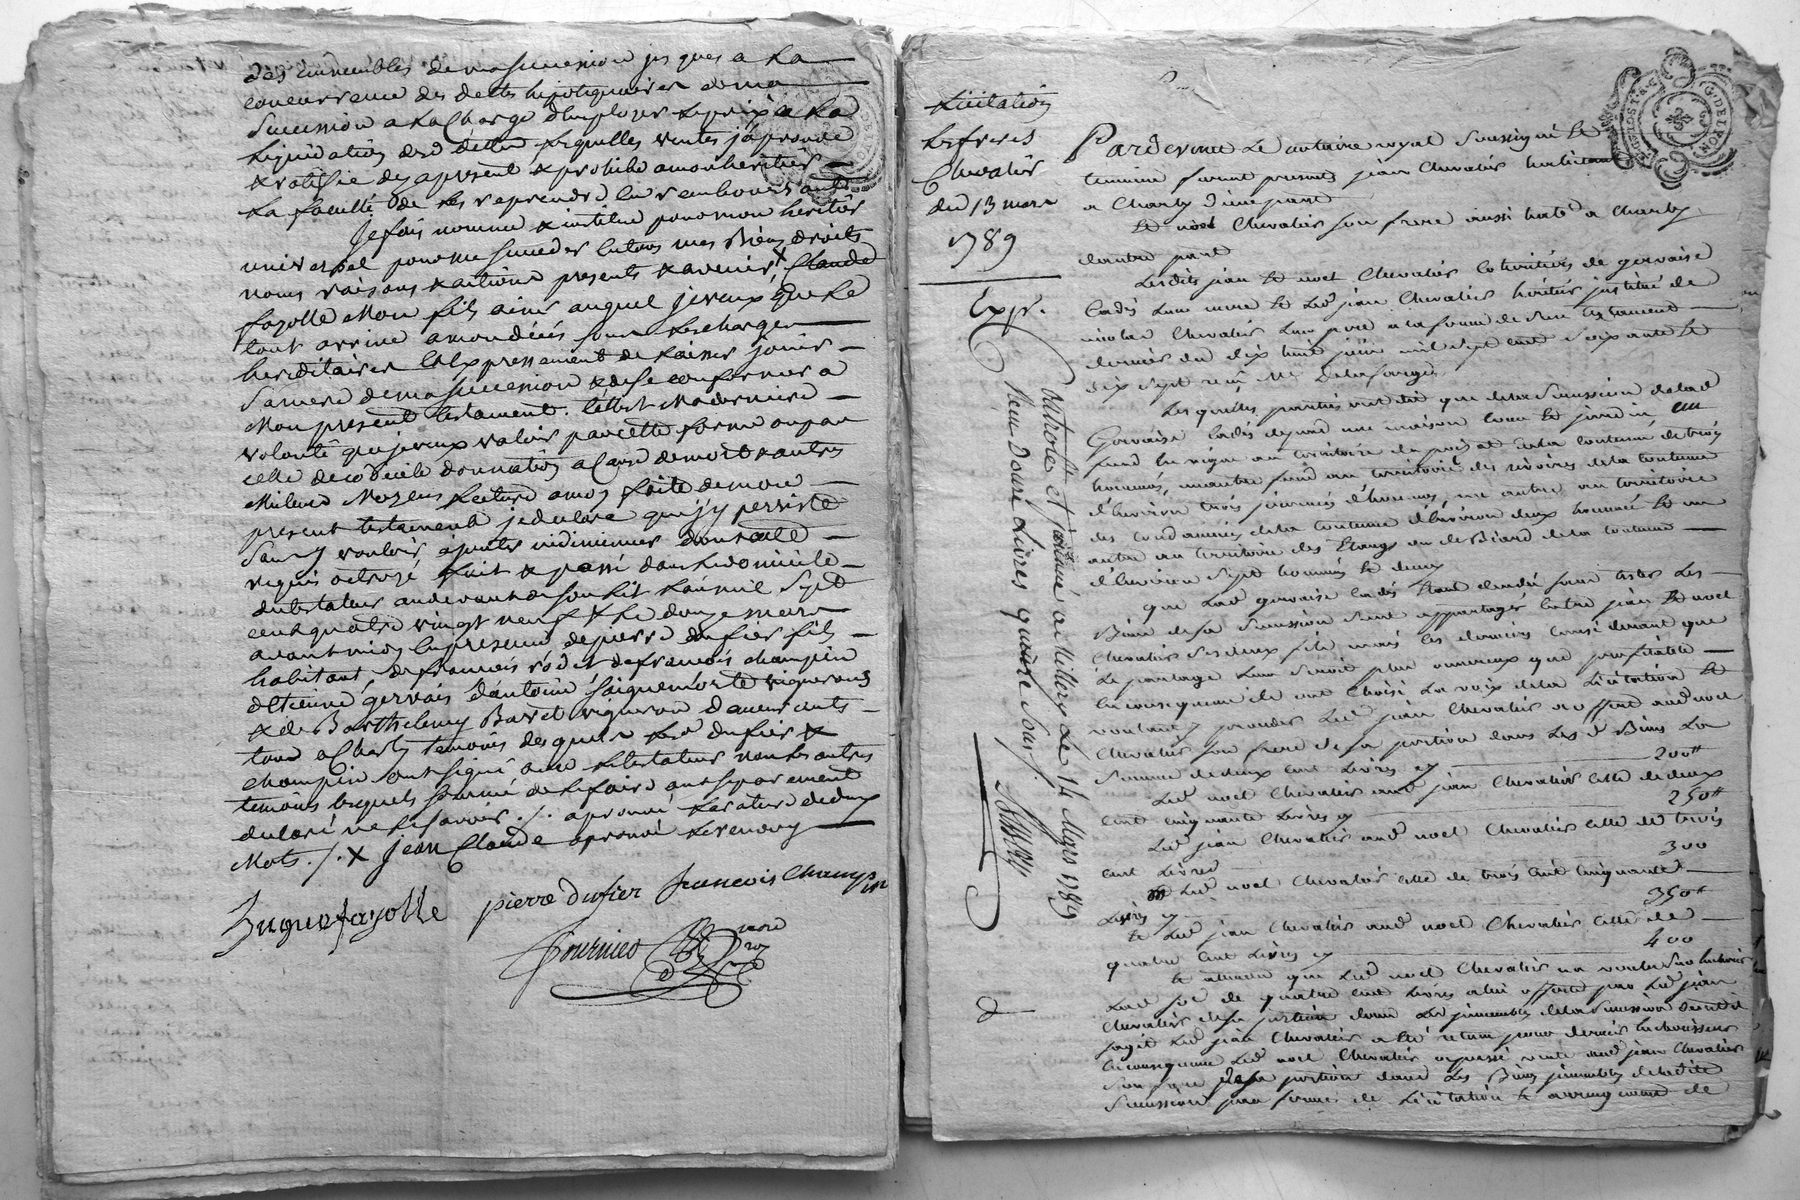 des immeubles de ma succession jusques a la
concurrence des dettes hipotiquaires de ma
succession a la Charge d'Employer le prix a la
liquidation desd dettes lesquelles ventes j'aprouve
& ratifie dez apresent & prohibe a mon heritier
la faculté de les reprendre en remboursant
Je fais nomme & institue pour mon heritier
universel pour me succeder en tous mes Biens droits
noms raisons & actions presents & avenir X Claude
fayolle Mon fils ainé auquel je veux que le
tout arrive a mon décés sous les charges
hereditaires & Expressement de laisser jouir
sa mere de ma succession & de se conformer a
Mon present testament. C'est Ma derniere
volonté que je veux valoir par cette forme ou par
celle de codicile donnation a Cause de mort & autres
Meilleurs Moyens lecture a moy faite de mon
present testament je declare que j'y persiste
sans y vouloir ajouter ni diminuer dont acte
requis octroyé fait & passé dans le domicile
du testateur au devant de son lit l'an mil sept
cent quatre vingt neuf & le douze mars
avant midy en presence de pierre dufier fils
habitant, de françois rodet de françois champin
d'Etienne gervais d'antoine saignemorte vignerons
& de Barthelemy Baret vigneron demeurants
tous a Charly temoins desquels led dufier &
champin ont signé avec le testateur non les autres
temoins lesquels de le faire ont separement
declaré ne le sçavoir ./. aprouvé la rature de deux
Mots ./. X jean Claude aprouvé le renvoy
hugue fayolle pierre dufier francois Champin
fournier
licitation
les freres
Chevalier
du 13 mars
1789
Exp.
Controllé et insinué a Millery Le 14 Mars 1789
Reçu Douze Livres quinze sous.
Pardevant Le notaire royal soussigné &
temoins furent presents jean Chevalier habitant
a Charly d'une part
Et noel Chevalier son frere aussi habt a Charly
d'autre part
Lesdits jean & noel Chevalier coheritiers de gervaise
Cadès leur mere & led jean Chevalier heritier institué de
nicolas Chevalier leur pere a la forme de son testament
dernier du dix huit juin mil sept cent soixante &
dix sept reçu Me Delaforge
Lesquelles parties ont dit que de la succession de lad
Gervaise Cadès depend une maison cour & jardin un
fond en vigne au territoire de de la contenue de trois
hommes, un autre fond au territoire des de la contenue
d'Environ trois journées d'hommes, un autre au territoire
des condamines de la contenue d'Environ deux hommes & un
autre au territoire des Etangs ou de Biard de la contenue
d'Environ sept hommes & demy
que lad gervaise Cadès Etant decedée sans tester Les
Biens de sa succession sont appartages entre jean & noel
Chevalier ses deux fils mais ces derniers considerant que
Le partage leur seroit plus onereux que profitable
en consequence ils ont choisi La voix de la licitation &
voulant y proceder Led jean Chevalier a offert aud noel
Chevalier son frere de sa portion dans les d Biens La
somme de deux cent Livres cy 200#
Led noel Chevalier aud jean Chevalier celle de deux
cent cinquante Livres cy 250#
Led jean Chevalier aud noel Chevalier celle de trois
cent Livres 300
Led noel Chevalier celle de trois cent cinquante
Livres cy 350#
Et Led jean Chevalier aud noel Chevalier celle de
quatre cent Livres cy 400
Et attendu que Led noel Chevalier n'a voulu surencherir
Lad so de quatre cent Livres a lui offerte par Led jean
Chevalier de sa portion dans les immeubles de la succession dont il
s'agit Led jean Chevalier a été retenu pour dernier Encherisseur
En consequence Led noel Chevalier a passé vente aud jean Chevalier
son frere de sa portion dans Les Biens immeubles de ladite
succession par forme de Licitation & arrangement de